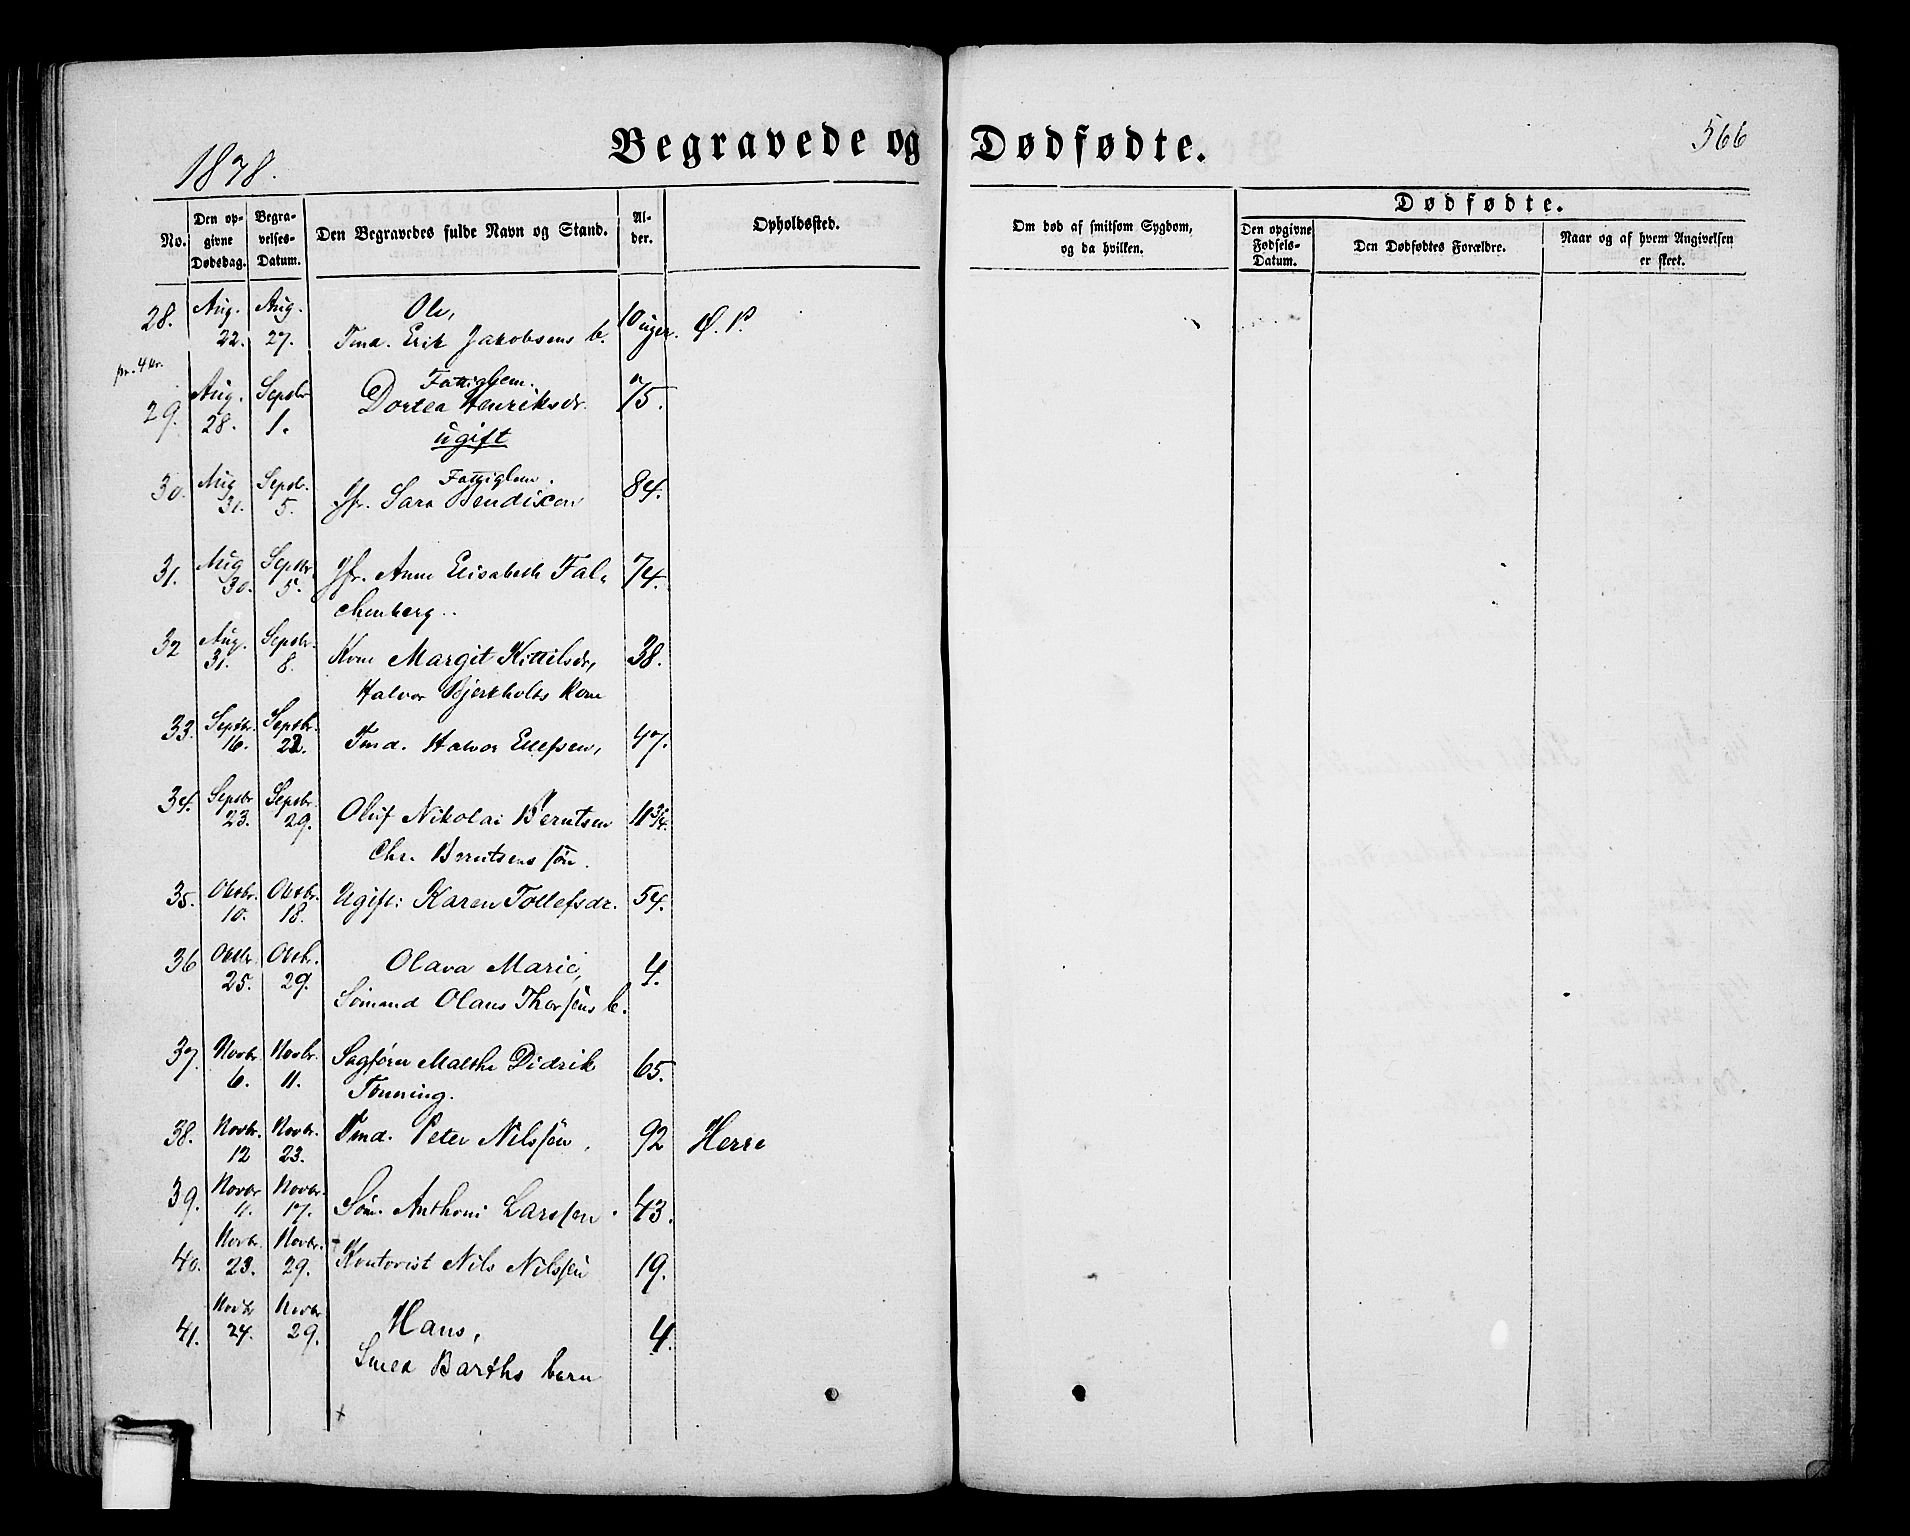 1878.
Begravede og Dødfødte.
566
No.
Den opgivne Dødsdag.
Begravelses-Datum.
Den Begravedes fulde Navn og Stand.
Alder.
Opholdssted.
Om død af smitsom Sygdom, og da hvilken.
Dødfødte.
Den opgivne Fødsels-Datum.
Den Dødfødtes Forældre.
Naar og af hvem Angivelsen er skeet.
28. Aug. 22. Aug. 27. Ole, 10 uger. Ø. P.
Tmd. Erik Jakobsens b.
pr. 4 kr.
Fattiglem.
29. Aug. 28. Septbr. 1. Dortea Henriksdr. 75.
ugift
Fattiglem.
30. Aug 31. Septbr. 5. Jfr. Sara Bendixen 84.
31. Aug 30. Septbr. 5. Jfr. Anne Elisabeth Fal- 74.
chenberg.
32 Aug. 31. Septbr. 8. Kone Margit Kittilsdr, 38.
Halvor Bjerkholts kone
33. Septbr. 16. Septbr. 22. Tmd. Halvor Ellefsen, 47.
34. Septbr 23. Septbr. 29. Oluf Nikolai Berntsen 11 3/4.
Chr. Berntsens søn.
35. Oktbr. 10. Oktbr. 18. Ugift: Karen Tollefsdr. 54.
36 Oktbr. 25. Oktbr. 29. Olava Marie, 4.
Sømand Olaus Thorsens b.
37. Novbr. 6. Novbr. 11. Sagfører Malthe Didrik 65.
Tønning.
38. Novbr. 12 Novbr. 23. Tmd. Peter Nilssen, 92 Herre
39. Novbr 11. Novbr. 17. Søm. Anthoni Larssen 43.
40. Novbr. 23. Novbr. 29. Kontorist Nils Nilssen 19.
41. Novbr 24. Novbr 29. Hans, 4.
Smed Barths barn